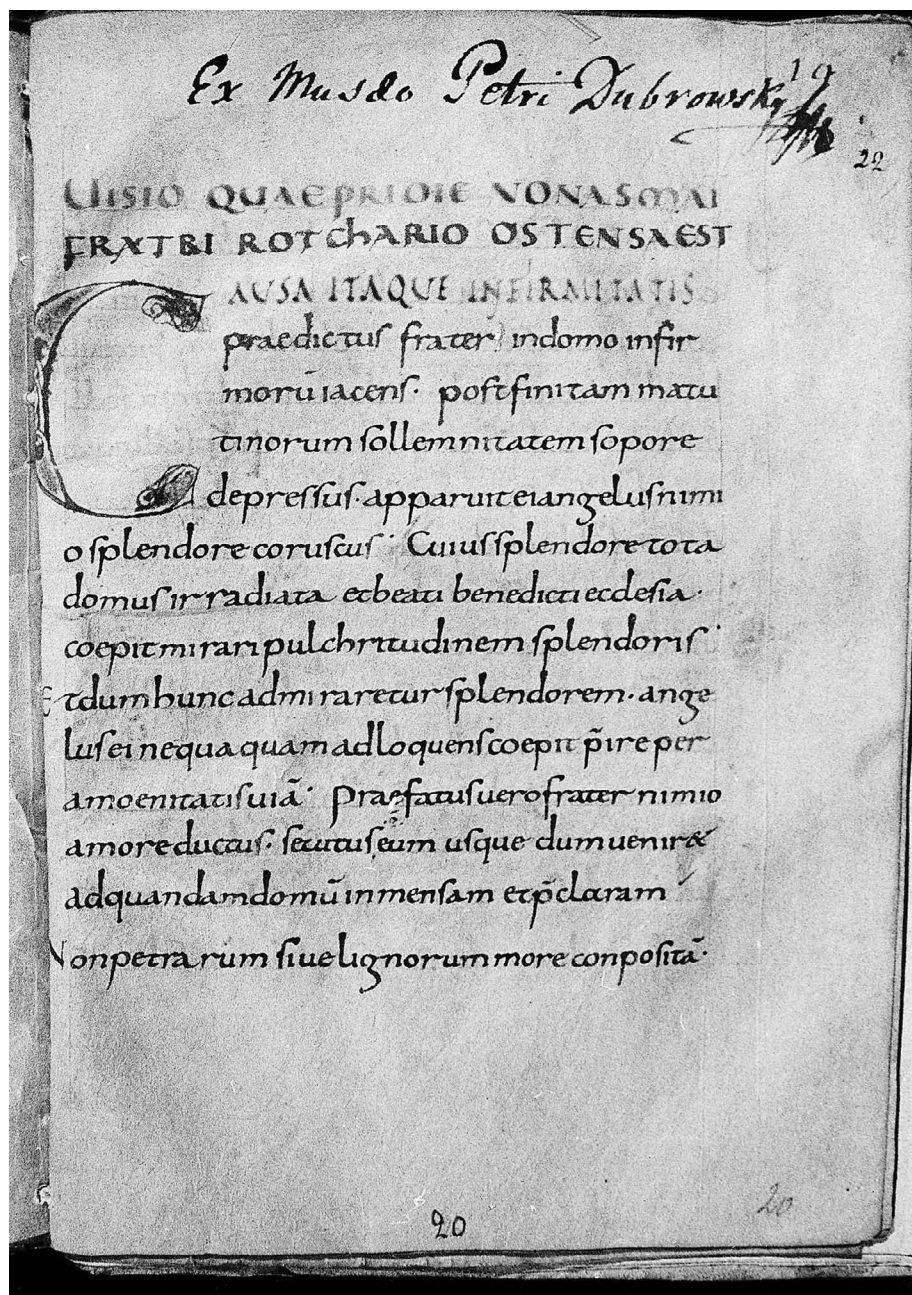 Ex Musæo Petri Dubrowsky
19
22
UISIO QUAE PRIDIE NONAS MAI
FRATRI ROTCHARIO OSTENSA EST
CAUSA ITAQUE INFIRMITATIS
praedictus frater indomo infir
morū iacens· post finitam matu
tinorum sollemnitatem sopore
depressus· apparuit ei angelus nimi
o splendore coruscus· Cuius splendore tota
domus irradiata et beati benedicti ecclesia·
coepit mirari pulchritudinem splendoris·
Et dum hunc admiraretur splendorem· ange
lus ei nequaquam adloquens coepit p̄ire per
amoenitatis uiā· Praefatus uero frater nimio
amore ductus· secutus eum usque dum uenir&
ad quandam domū inmensam et p̄claram
Non petrarum siue lignorum more conpositā·
20
20